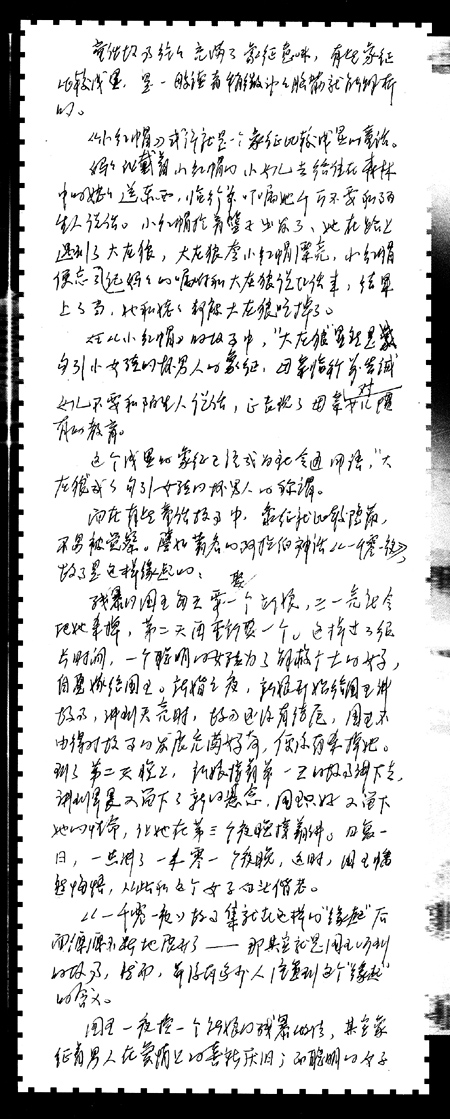 童话故事给人充满了象征意味，有些象征
比较浅显，是一般读者稍微动动脑筋就能理解
的。
《小红帽》或许就是一个象征比较浅显的童话。
妈妈让戴着小红帽的小女儿去给住在森林
中的姥姥送东西，临行前叮嘱她千万不要和陌
生人说话。小红帽挎着篮子出发了，她在路上
遇到了大灰狼，大灰狼夸小红帽漂亮，小红帽
便忘记妈妈的嘱咐和大灰狼说起话来，结果
上了当，她和姥姥都被大灰狼吃掉了。
在《小红帽》的故事中，"大灰狼"显然是
勾引小女孩的坏男人的象征，母亲临行前告诫
女儿不要和陌生人说话，正表现了母亲对女儿
的教育。
这个浅显的象征已经成为社会通用语，"大
灰狼"成了勾引女孩的坏男人的称谓。
而在有些童话故事中，象征就比较隐蔽，
不易被觉察。譬如著名的阿拉伯神话《一千零一夜》
故事是这样缘起的：
残暴的国王每天娶一个新娘，天一亮就令
人把她杀掉，第二天再重新娶一个。这样过了很
长时间，一个聪明的女孩为了解救个上的女子，
自愿嫁给国王。新婚之夜，新娘开始给国王讲
故事，讲到天亮时，故事还没有结尾，国王不
由得对故事的发展充满好奇，便没有杀掉她。
到了第二天晚上，新娘接着前一天的故事讲下去，
讲到早晨又留下了新的悬念，国王只好又留下
她的性命，让她在第三个夜晚接着讲。日复一
日，一共讲了一千零一个夜晚，这时，国王幡
然悔悟，从此和这个女子白头偕老。
《一千零一夜》故事集就在这样的"缘起"后
面源源不断地展开了——那其实就是国王听到
的故事，然而，并没有多少人注意到这个"缘起"
的含义。
国王一夜换一个新娘的残暴的性，其实象
征着男人在爱情上的喜新厌旧；而聪明的女子